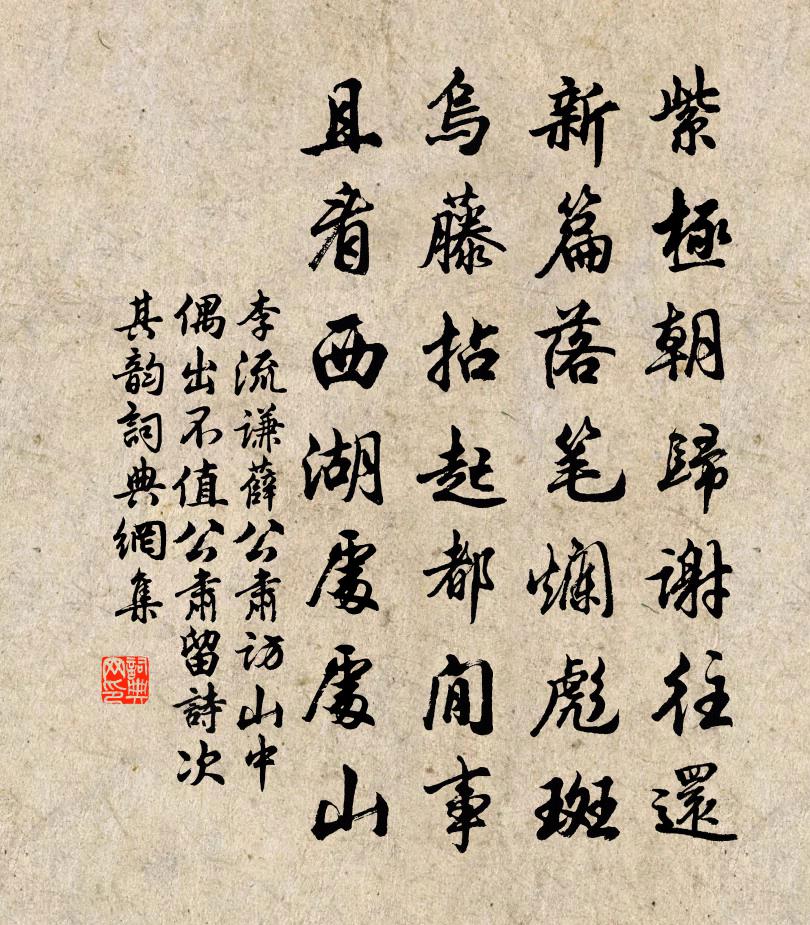 紫極朝歸謝往還
新篇落笔爛彪斑
烏藤拈起都閒事
且看西湖處處山
李流谦薛公肅訪山中
偶出不值公肅留詩次
其韵詞典網集
詞典网印